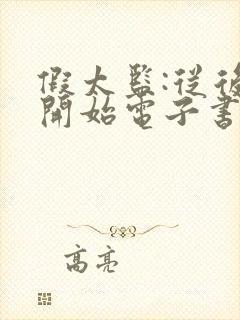 假太監:從後
開始電子書
高亮